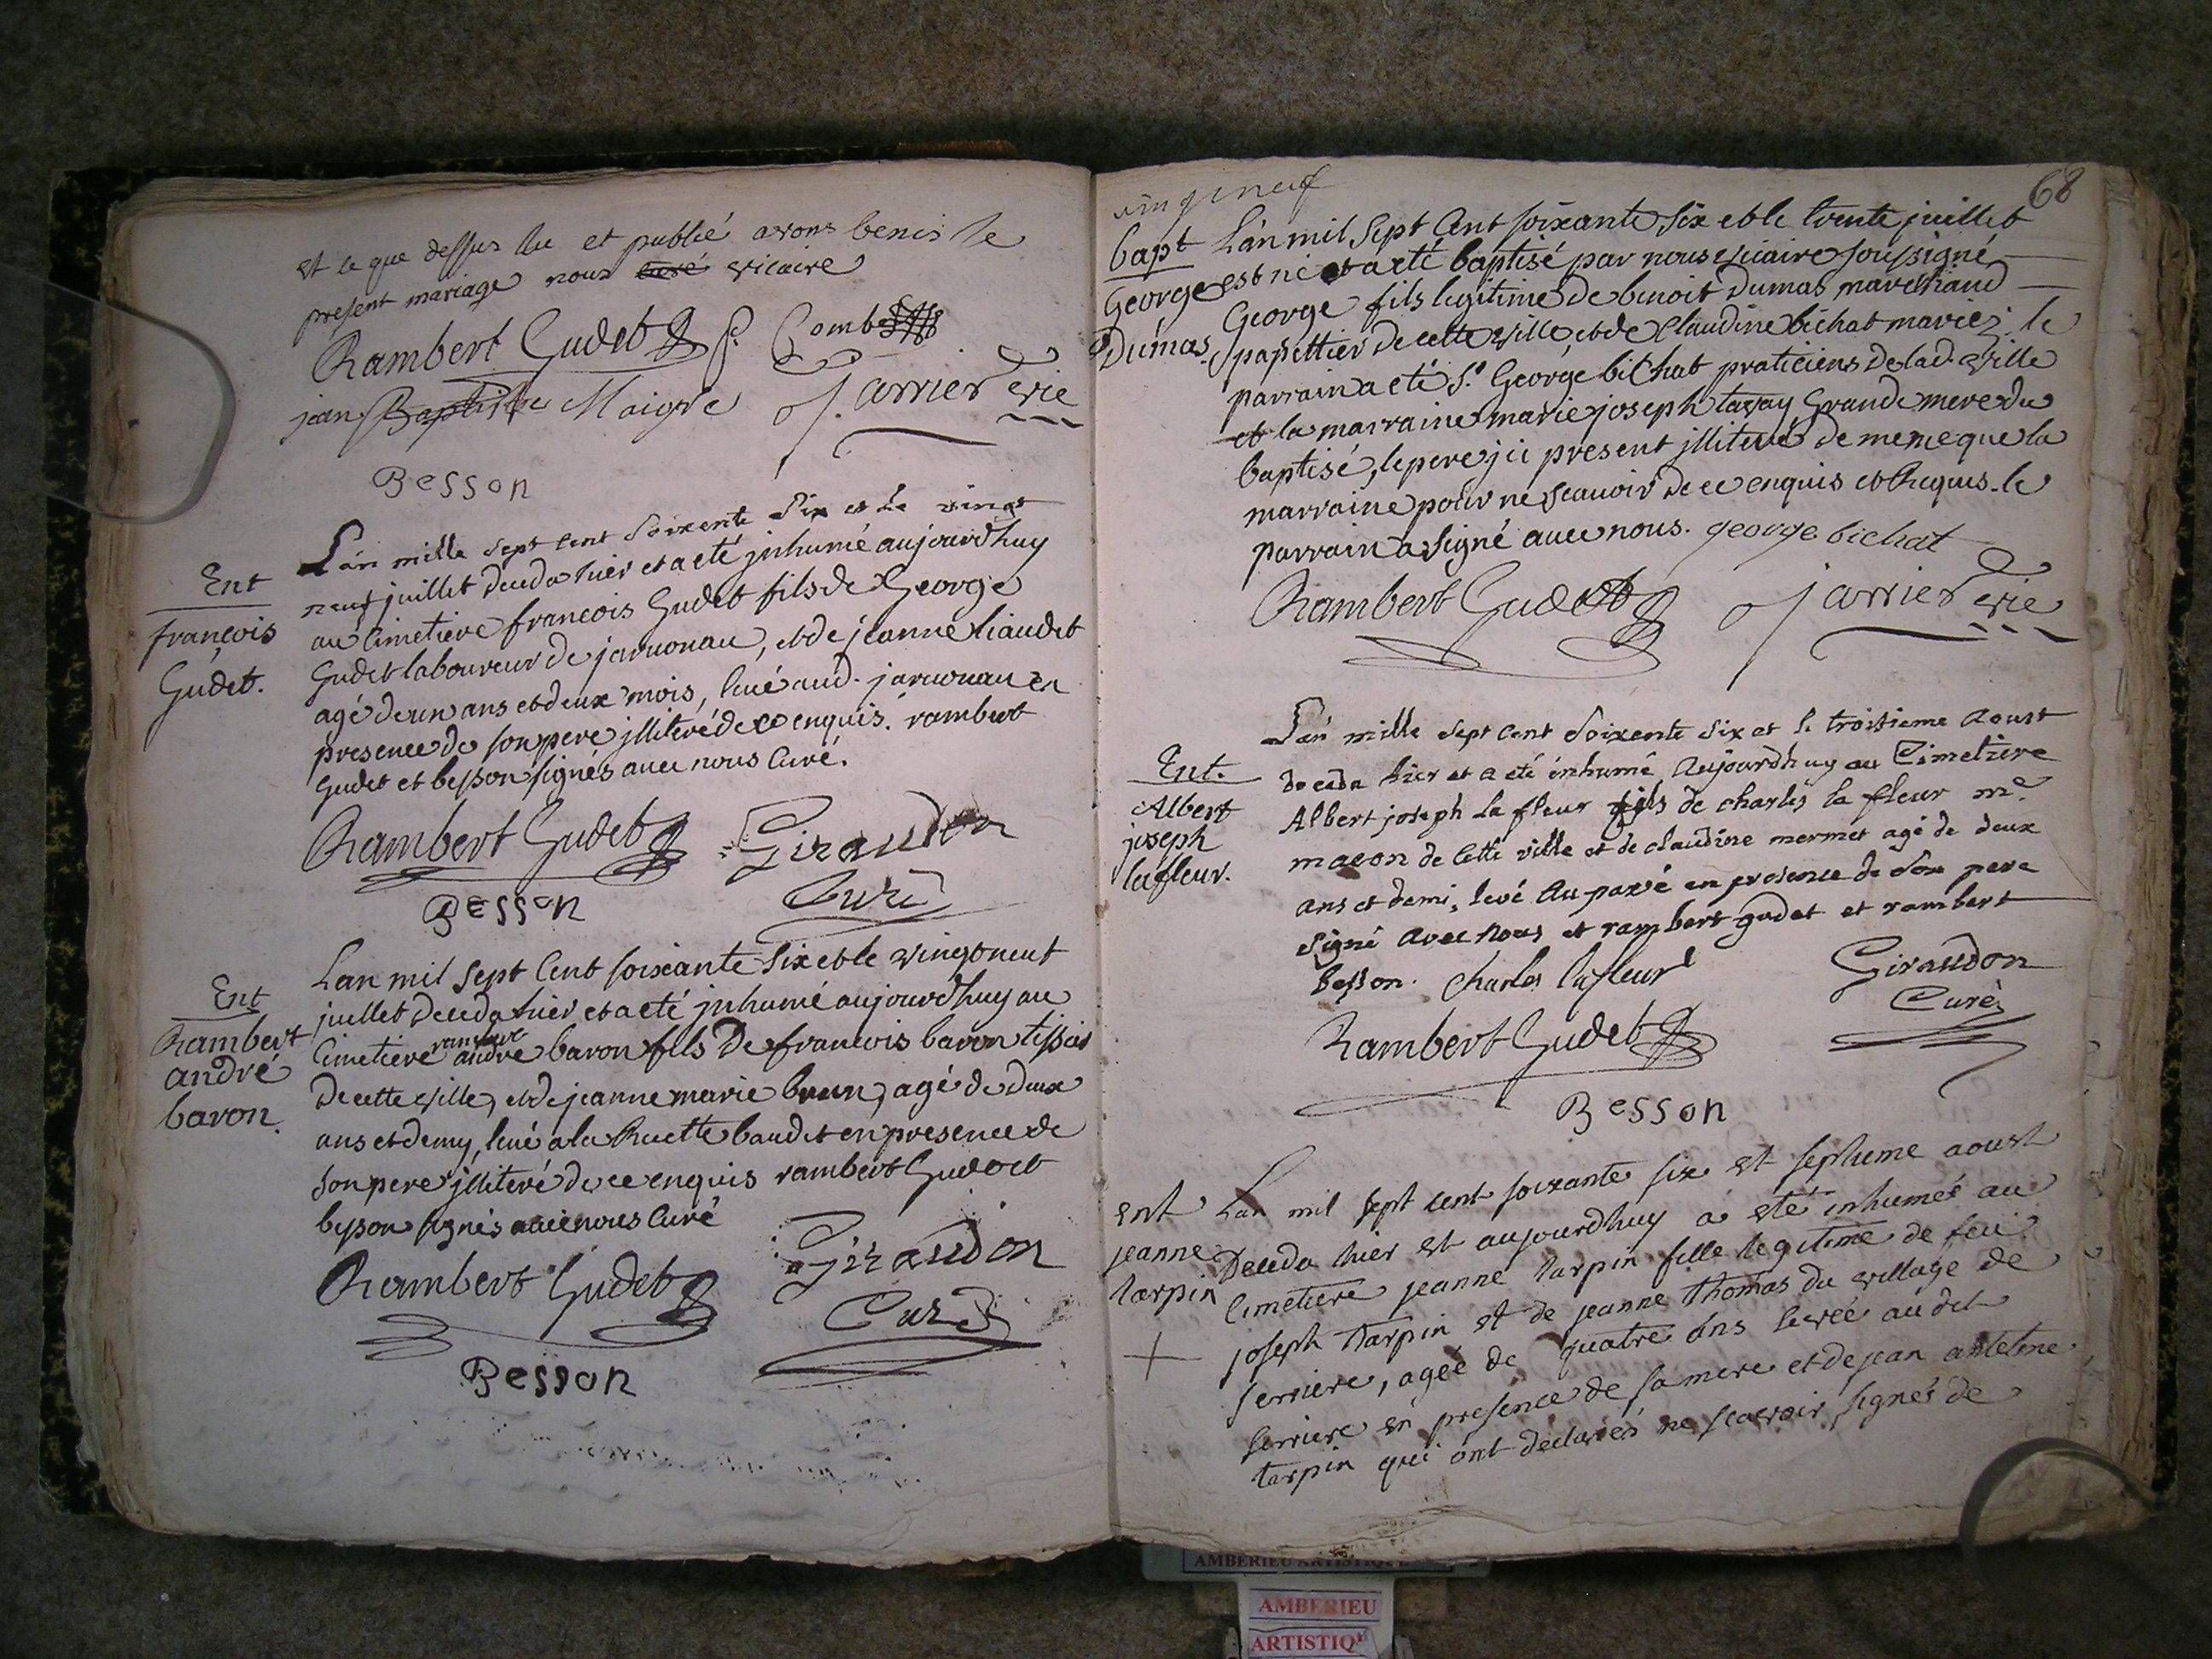 et ce que dessus lu et publié avons benis le
present mariage nous curé vicaire
Rambert Gudet f. Combe
jean Baptiste Maigre j. arrier vic
Besson
Ent
françois
Gudet.
L'an mille sept cent soixente six et le vingt
neuf juillet deceda hier et a eté jnhumé aujourdhuy
au Cimetiere francois Gudet fils de George
Gudet laboureur de jarvonau, et de jeanne liaudet
agé de un ans et deux mois, levé aud. jarvonau en
presence de son pere jlliteré de ce enquis. rambert
Gudet et besson signés avec nous Curé.
Rambert Gudet Giraudon
Besson Curé
Ent
Rambert
andré
baron.
Lan mil sept Cent soixante six et le vingtneuf
juillet deceda hier et a eté jnhumé aujourdhuy au
rambert
Cimetiere andre baron fils De francois baron tissier
De cette ville, et de jeanne marie brun, agé de deux
ans et demy, levé a la Ruette baudet en presence de
son pere jlliteré de ce enquis rambert Gudet et
besson signés avec nous Curé
Rambert Gudet Giraudon
Curé
Besson
68
vingt neuf
bapt
George
Dumas.
L'an mil Sept Cent soixante Six et le trente juillet
est né et a eté baptisé par nous vicaire soussigné
George fils legitime de benoit Dumas marchand
papettier de cette ville, et de Claudine bichat mariez. le
parrain a eté Sr. George bichat praticiens de lad. ville
et la marraine marie joseph tavay Grande mere du
baptisé, le pere jci present jlliteré de meme que la
marraine pour ne scavoir de ce enquis et Requis. le
parrain a signé avec nous. george bichat
Rambert Gudet j arrier vic
Ent.
Albert
joseph
lafleur.
L'an mille sept cent soixente six et le troisieme Aoust
deceda hier et a eté inhumé Aujourdhuy au Cimetiere
Albert joseph la fleur fils de charles la fleur me.
maçon de cette ville et de claudine mermet agé de deux
ans et demi, levé Au pavé en presence de son pere
signé avec nous et rambert gudet et rambert
besson. charles lafleur Giraudon
Curé
Rambert Gudet
Besson
ent
jeanne
tarpin
Lan mil sept cent soixante six et septieme aoust
Deceda hier et aujourdhuy a eté inhumeé au
cimetiere jeanne tarpin fille legitime de feu
joseph tarpin et de jeanne thomas du village de
serriere, ageé de quatre ans leveé audit
serriere en presence de sa mere et de jean antelme
tarpin qui ont declarés ne scavoir signés de
AMBERIEU ARTISTIQUE
AMBERIEU
ARTISTIQ